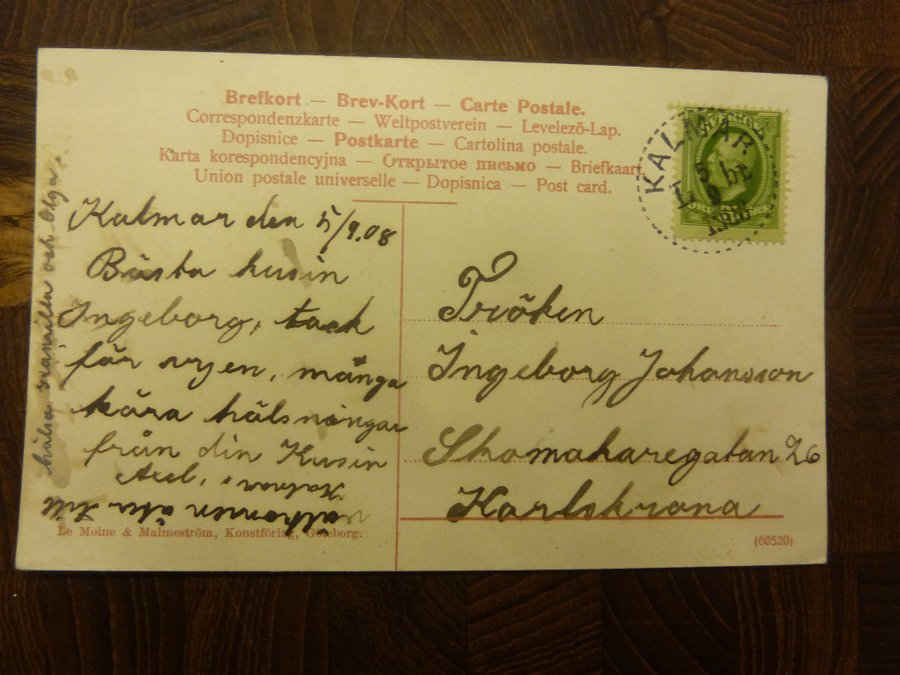 Brefkort — Brev-Kort — Carte Postale.
Correspondenzkarte — Weltpostverein — Levelező-Lap.
Dopisnice — Postkarte — Cartolina postale.
Karta korespondencyjna — Открытое письмо — Briefkaart
Union postale universelle — Dopisnica — Post card.
KALMAR
5
9
SVERIGE
Kalmar den 5/9.08
Bästa kusin
Ingeborg, tack
för vyen, många
kära hälsningar
från din Kusin
Axel,
Kalmar
till
hälsa och Olga.
Fröken
Ingeborg Johansson
Skomakaregatan 26
Karlskrona
Le Moine & Malmeström, Konstförlag, Göteborg.
(60520)